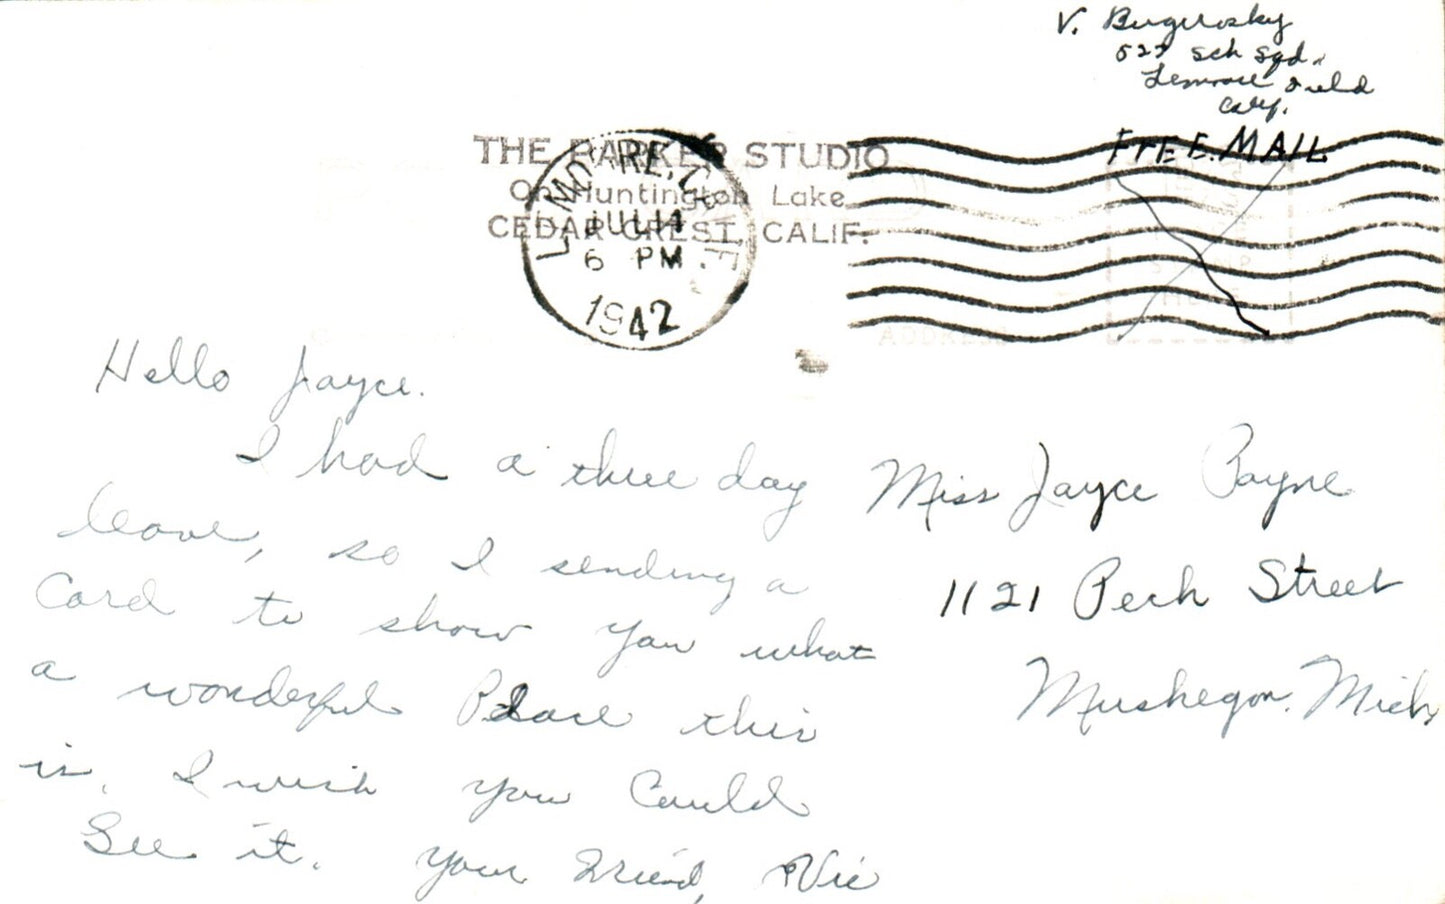 V. Bugerosky
522 Sch Sqd.
Lemoore Field
Calif.
FreE. MAIL
THE PARKER STUDIO
On Huntington Lake
CEDAR CREST, CALIF.
LEMOORE, CALIF
JUL 14
6 PM
1942
STAMP
HERE
ADDRESS
Hello Jayce.
I had a three day
leave, so I sending a
Card to show you what
a wonderful Place this
is. I wish you Could
See it. Your Friend, Vic
Miss Jayce Payne
1121 Peck Street
Muskegon. Mich.